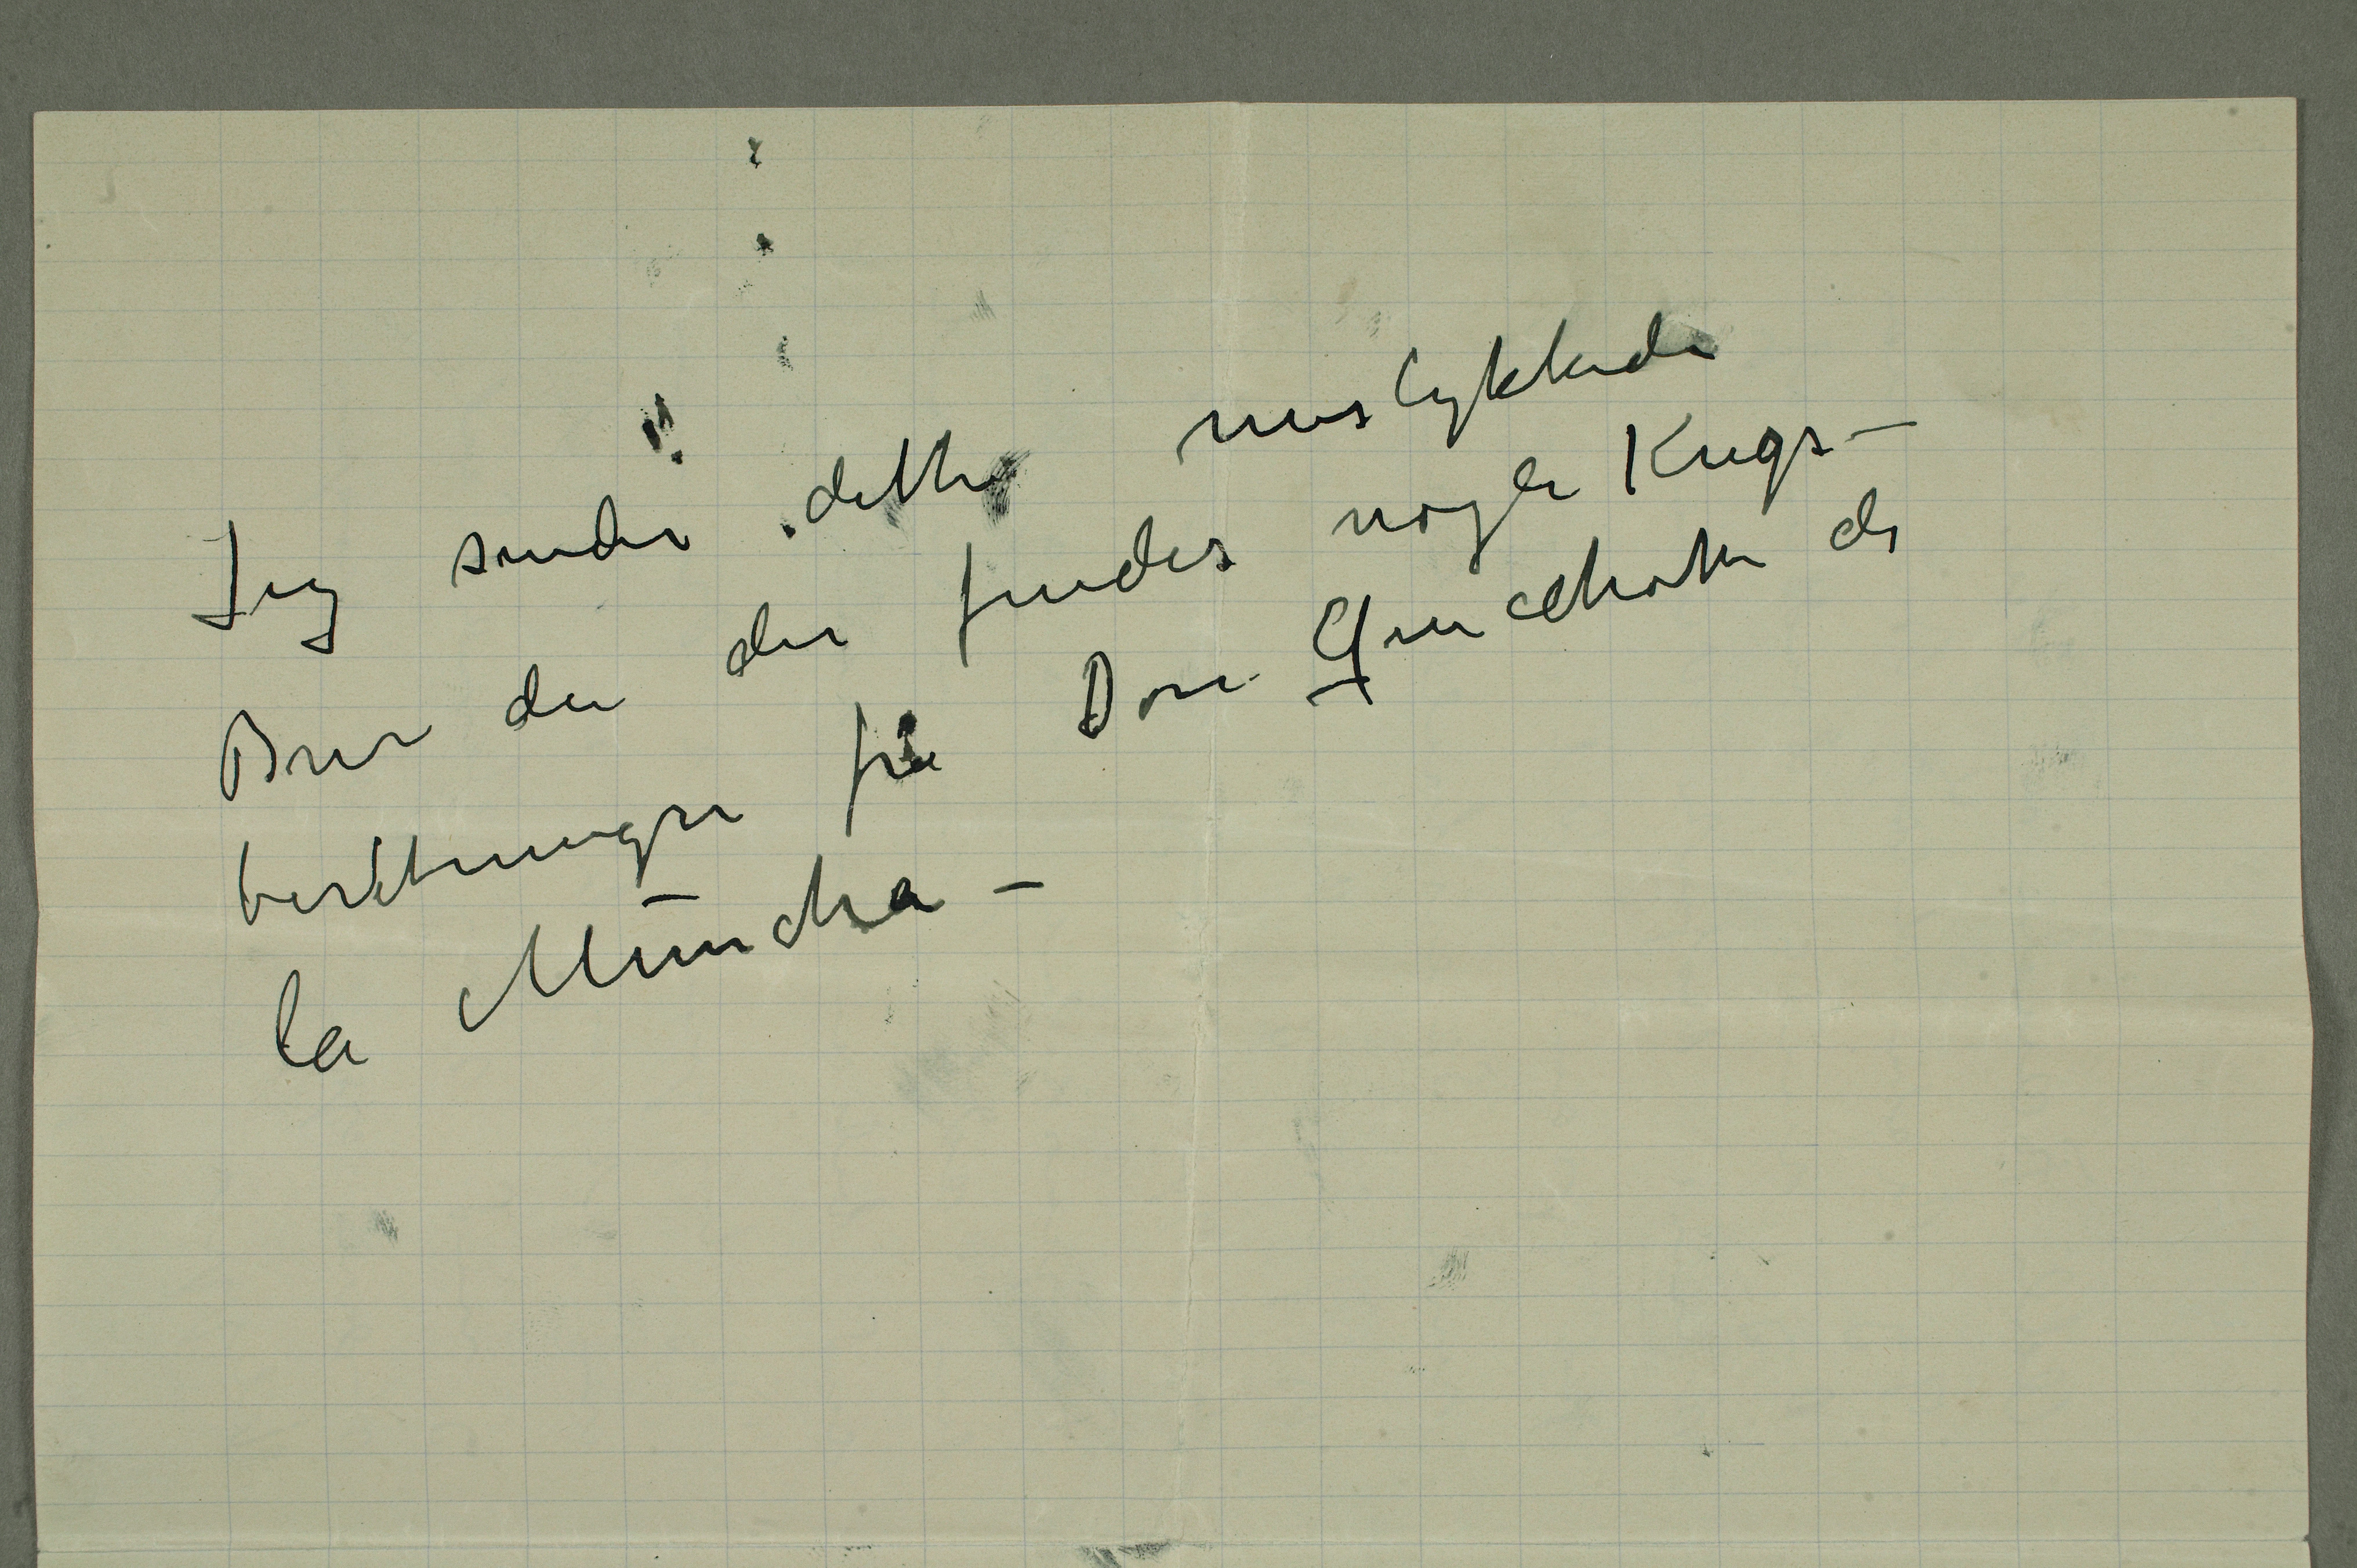 Jeg sender dette mislykkede
Brev da der findes nogle Krigs–
beretninger fra Don Quichotte de
la Muncha –